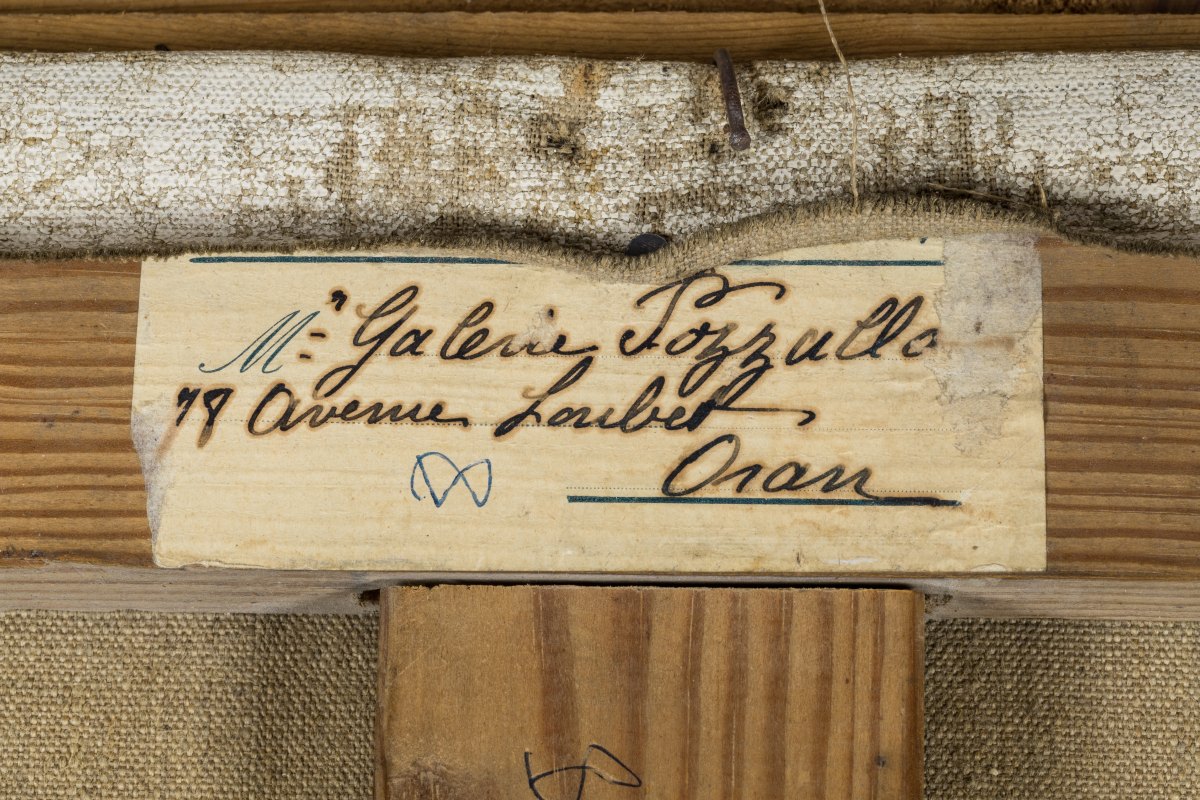 M = "Galerie Pozzallo
78 Avenue Loubet
Oran